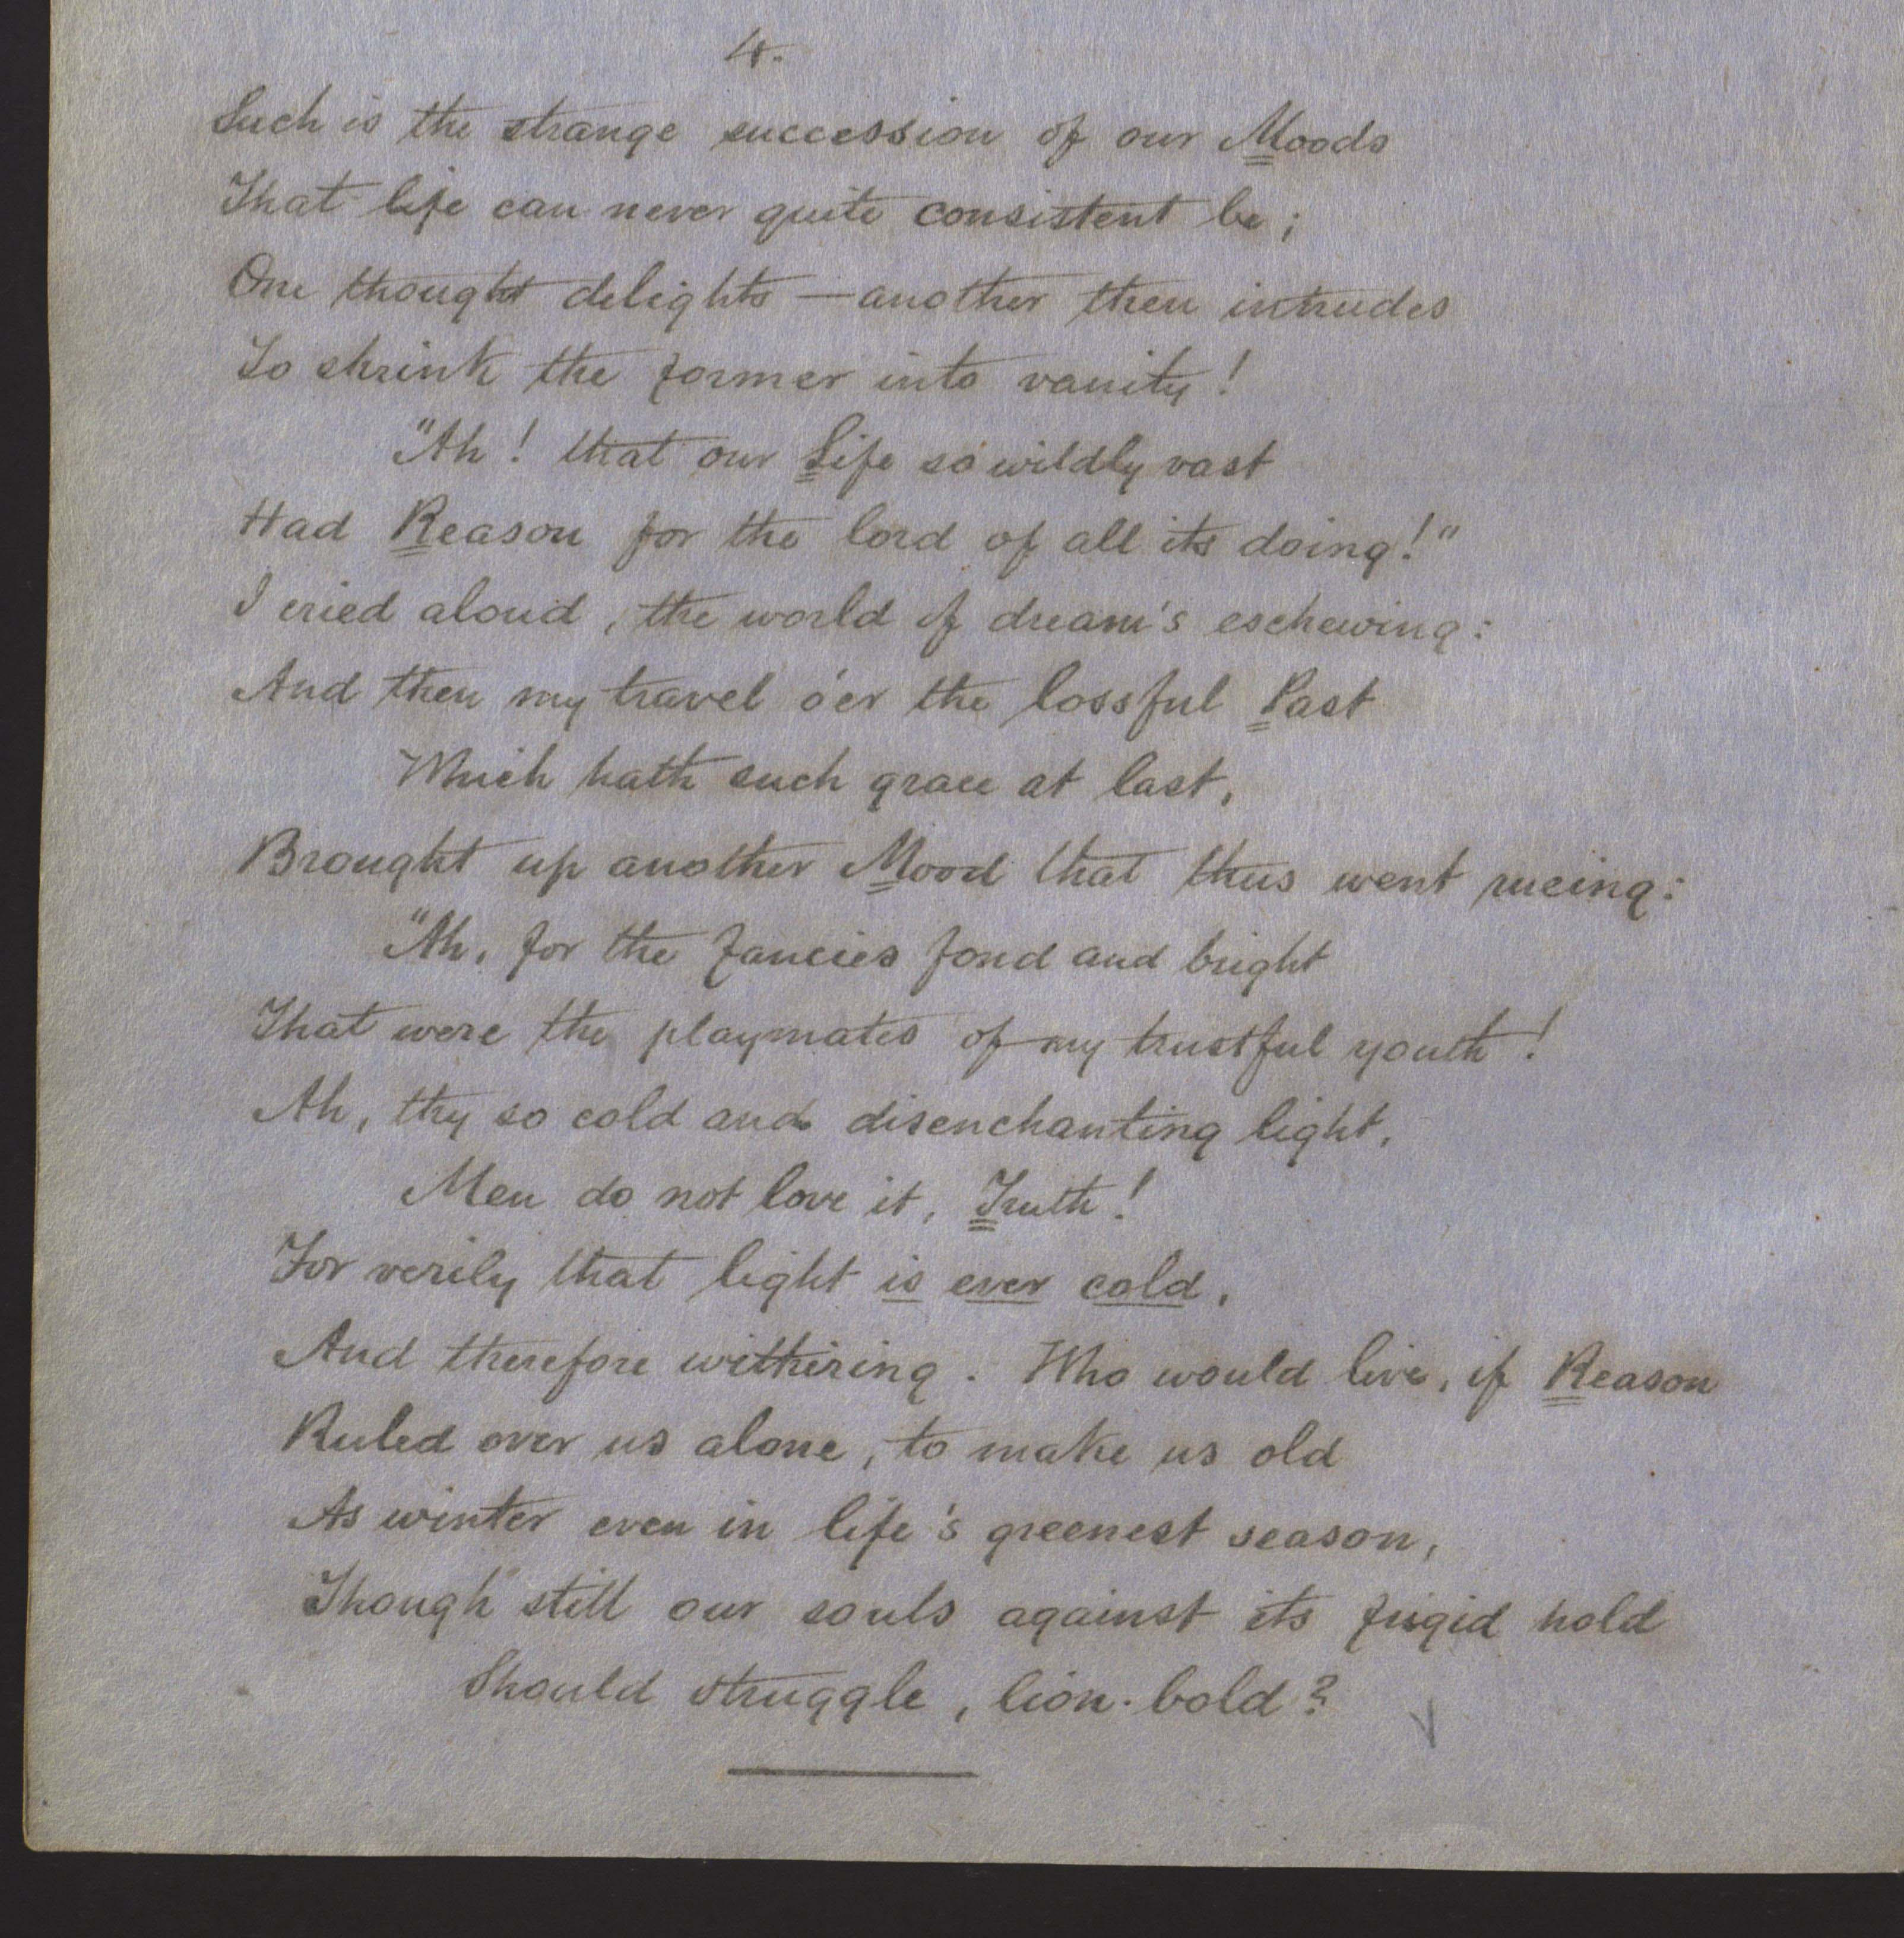 4.
Such is the strange succession of our Moods
That life can never quite consistent be;
One thought delights — another then intrudes
To shrink the former into vanity!
"Ah! that our Life so wildly vast
Had Reason for the lord of all its doing!"
I cried aloud, the world of dream's eschewing:
And then my travel o'er the lossful Past
Which hath such grace at last,
Brought up another Mood that thus went rueing:
"Ah, for the fancies fond and bright
That were the playmates of my trustful youth!
Ah, thy so cold and disenchanting light,
Men do not love it, Truth!
For verily that light is ever cold,
And therefore withering. Who would live, if Reason
Ruled over us alone, to make us old
As winter even in life's greenest season,
Though still our souls against its frigid hold
Should struggle, lion-bold?